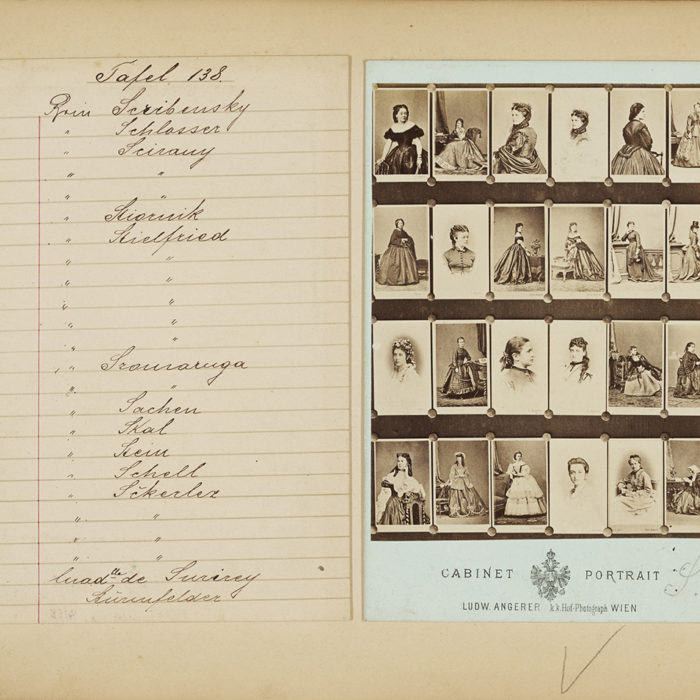 Tafel 138.
Boin Scribensky
" Schlosser
" Scirany
" "
" "
" Stornik
" Stielfried
" "
" "
" "
" "
" "
" Sromaruga
" "
" Sachen
" Skal
" Stein
" Schell
" Sckerlez
" "
" "
" "
de Surirey
Sturmfelder
CABINET PORTRAIT
LUDW. ANGERER k.k. Hof-Photograph WIEN